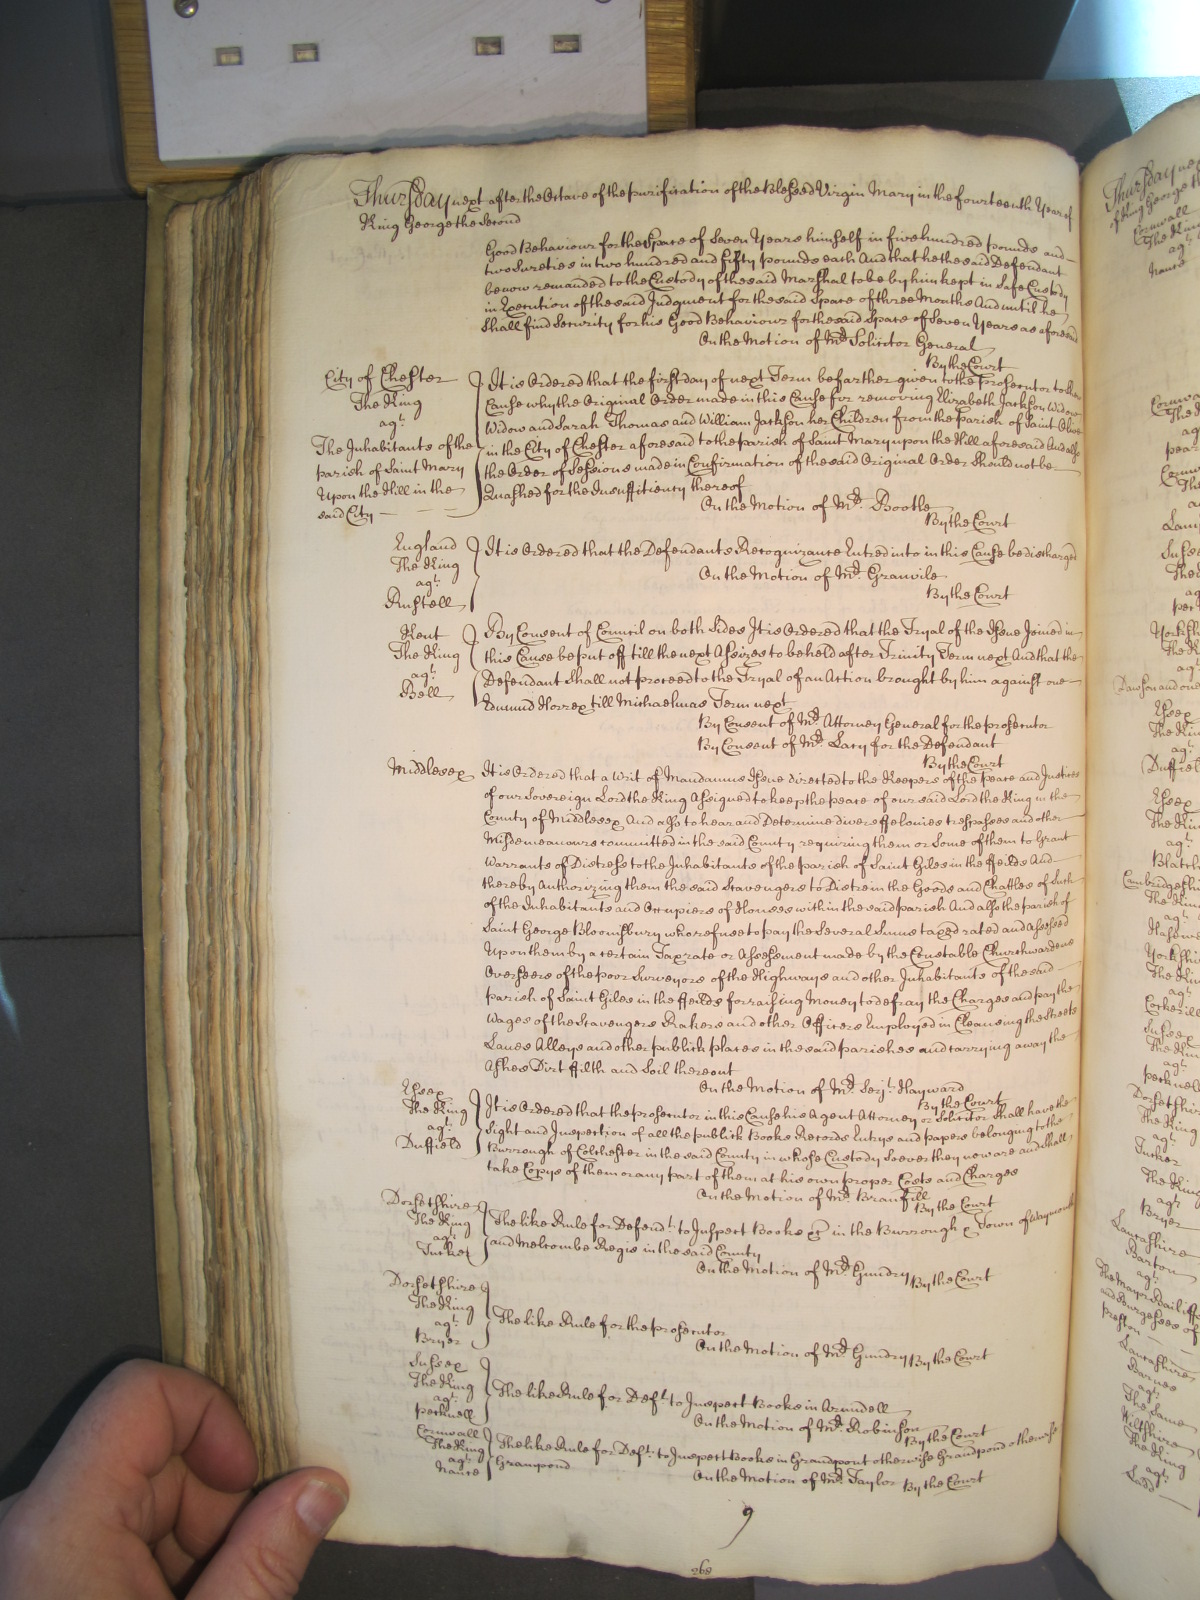 Thursday next after the Octave of the purification of the Blessed Virgin Mary in the fourteenth Year of
King George the Second
Good Behaviour for the Space of Seven Years himself in five hundred pounds and
two Sureties in two hundred and fifty pounds each And that he the said Defendant
be now remanded to the Custody of the said Marshal to be by him kept in Safe Custody
in Execution of the said Judgment for the said Space of three Months And until he
Shall find Security for his Good Behaviour for the said Space of Seven Years as aforesaid
On the Motion of Mr. Solicitor General
By the Court
City of Chester
The King
agt.
The Inhabitants of the
parish of Saint Mary
Upon the Hill in the
said City
It is Ordered that the first day of next Term be farther given to the prosecutor to shew
Cause why the Original Order made in this Cause for removing Elizabeth Jackson Widow
Widow and Sarah Thomas and William Jackson her Children from the parish of Saint Olive
in the City of Chester aforesaid to the parish of Saint Mary upon the Hill aforesaid And also
the Order of Sessions made in Confirmation of the said Original Order Should not be
Quashed for the Insufficiency thereof
On the Motion of Mr. Bootle
By the Court
England
The King
agt.
Russell
It is Ordered that the Defendants Recognizance Entred into in this Cause be discharged
On the Motion of Mr. Granvile
By the Court
Kent
The King
agt.
Bell
By Consent of Council on both Sides It is Ordered that the Tryal of the Issue Joined in
this Cause be put off till the next Assizes to be held after Trinity Term next And that the
Defendant Shall not proceed to the Tryal of an Action brought by him against one
Edmund Horrex till Michaelmas Term next
By Consent of Mr. Attorney General for the prosecutor
By Consent of Mr. Lacy for the Defendant
By the Court
Middlesex
It is Ordered that a Writ of Mandamus Issue directed to the Keepers of the peace and Justices
of our Sovereign Lord the King Assigned to keep the peace of our said Lord the King in the
County of Middlesex And also to hear and Determine divers ffelonies trespasses and other
Misdemeanours committed in the said County requiring them or Some of them to Grant
Warrants of Distress to the Inhabitants of the parish of Saint Giles in the ffeilds And
thereby Authorizing them the said Scavengers to Distrein the Goods and Chattles of Such
of the Inhabitants and Occupiers of Houses within the said parish And also the parish of
Saint George Bloomsbury who refuse to pay the Several Sums taxed rated and Assessed
Upon them by a certain Tax rate or Assessment made by the Constable Churchwardens
Overseers of the poor Surveyors of the Highways and other Inhabitants of the said
parish of Saint Giles in the ffeilds for raising Money to defray the Charges and pay the
Wages of the Scavengers Rakers and other Officers Employed in Cleansing the Streets
Lanes Alleys and other publick places in the said parishes and carrying away the
Ashes Dirt ffilth and Soil thereout
On the Motion of Mr. Serjt. Hayward
By the Court
Essex
The King
agt.
Duffield
It is Ordered that the prosecutor in this Cause his Agent Attorney or Solicitor Shall have the
Sight and Inspection of all the publick Books Records Entrys and papers belonging to the
Burrough of Colchester in the said County in whose Custody Soever they now are and Shall
take Copys of them or any part of them at his own proper Costs and Charges
On the Motion of Mr. Bramfill
By the Court
Dorsetshire
The King
agt.
Tucker
The like Rule for Defendt. to Inspect Books &c in the Burrough & Town of Waymouth
and Melcombe Regis in the said County
On the Motion of Mr. Gundry By the Court
Dorsetshire
The King
agt.
Bryer
The like Rule for the prosecutor
On the Motion of Mr. Gundry By the Court
Sussex
The King
agt.
pecknell
The like Rule for Deft. to Inspect Books in Arundell
On the Motion of Mr. Robinson
By the Court
Cornwall
The King
agt.
Nance
The like Rule for Deft. to Inspect Books in Grandpont otherwise Grandpond otherwise
Grampond
On the Motion of Mr. Taylor By the Court
9
268
Thursday next
of King George the
Cornwall
The King
agt.
Nance
Sussex
Yorkshire
Dawson and one
Essex
The King
agt.
Duffield
Essex
The King
agt.
Cambridgeshire
The King
agt.
Yorkshire
The King
agt.
Sussex
The King
agt.
pecknell
Dorsetshire
The King
agt.
Tucker
The King
agt.
Bryer
Lancashire
Barton
agt.
The Mayor Bailiffs
and Burgesses of
preston
Lancashire
Barnes
agt.
The Same
Wiltshire
The King
agt.
Ladd